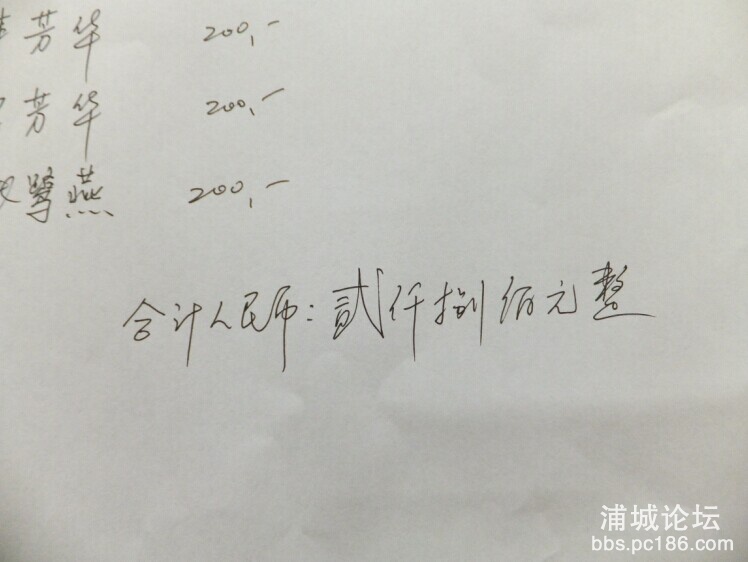 芳华 200,-
芳华 200,-
燕 200,-
合计人民币:贰仟捌佰元整
浦城论坛
bbs.pc186.com